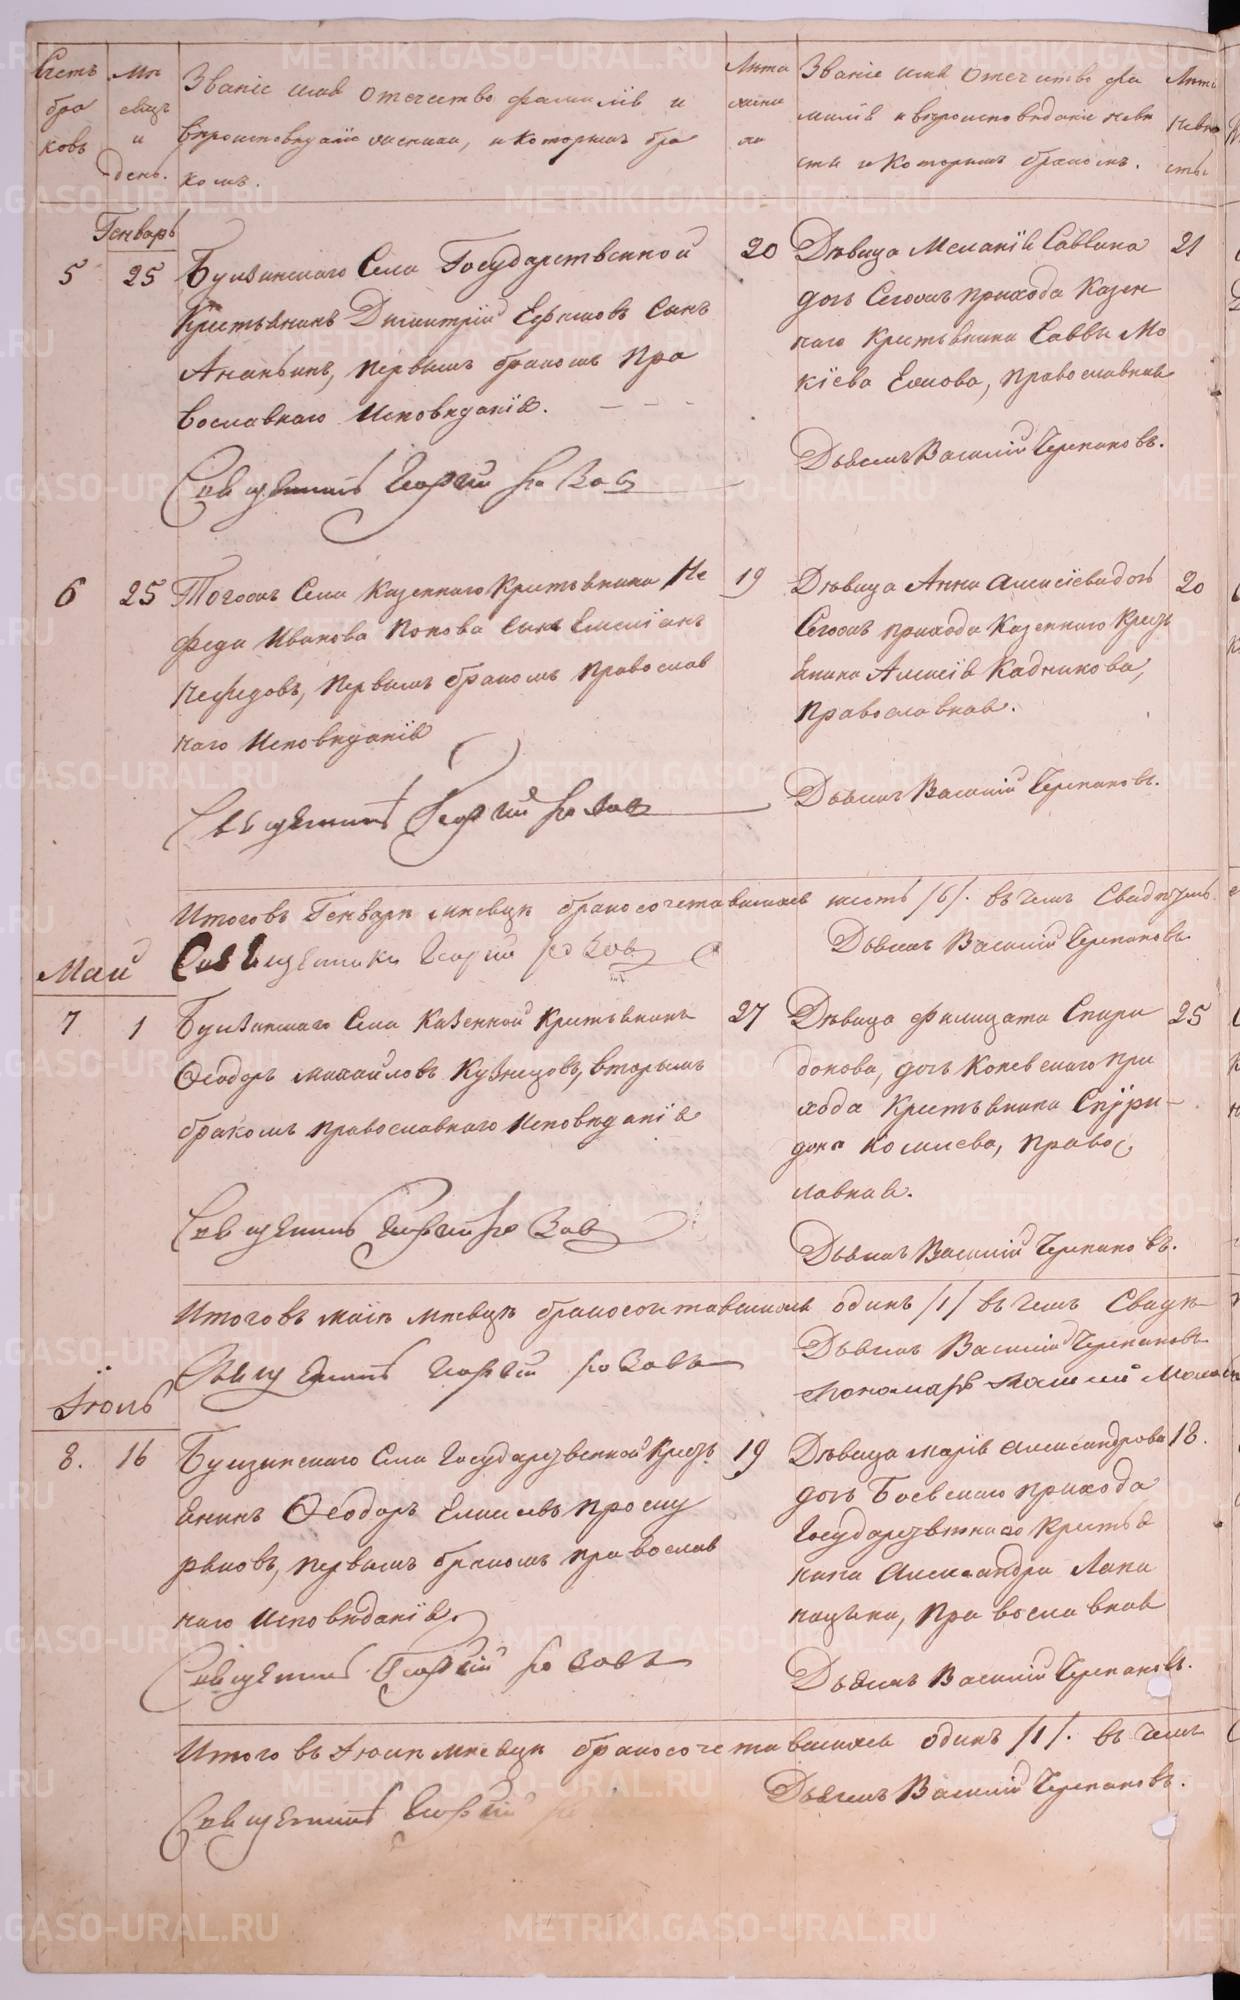 Счетъ браковъ
Мѣсяцъ и день.
Званіе имя отечество фамилія и
вѣроисповѣданіе жениха, и которымъ бра
комъ.
Лѣта жениха
Званіе имя отечество фа
милія и вѣроисповѣданіе невѣ
сты и которымъ бракомъ.
Лѣта невѣсты
Генварь
5
25
Бузинскаго Села Государственной
Крестьянинъ Димитрій Ефимовъ Сынъ
Ананьинъ, первымъ бракомъ Пра
вославнаго Исповѣданія.
20
Дѣвица Меланія Саввина
дочь Сегожъ прихода Казен
наго Крестьянина Саввы Мо
кіева Ежова, православная
21
Священникъ Георгій
Дьячекъ Василій Черепановъ.
6
25
Тогожъ Села Казеннаго Крестьянина Не
феда Иванова Попова сынъ Емеліанъ
Нефедовъ, первымъ бракомъ православ
наго Исповѣданія
19
Дѣвица Анна Алексіева дочь
Сегожъ прихода Казеннаго Кресть
янина Алексія Кадникова,
православная.
20
Священникъ Георгій
Дьячекъ Василій Черепановъ.
Итого въ Генварѣ мѣсяцѣ бракосочетавшихся шесть /6/. въ чемъ Свидѣтель.
Священникъ Георгій
Дьячекъ Василій Черепановъ
Май
7
1
Бузинскаго Села Казенной Крестьянинъ
Ѳеодоръ Михайловъ Кузнецовъ, вторымъ
бракомъ православнаго Исповѣданія
27
Дѣвица Филицата Спири
донова, дочь Коневскаго при
хода Крестьянина Спѵри-
дона Косшева, Правос
лавная.
25
Священникъ Георгій
Дьячекъ Василій Черепановъ.
Итого въ маіѣ мѣсяцѣ бракосочетавшихся одинъ /1/ въ чемъ Свидѣ
Священникъ Георгій
Дьячекъ Василій Черепановъ
Пономарь
Іюль
8.
16
Бузинскаго Села Государственной Кресть
янинъ Ѳеодоръ Елисѣевъ Проску
ряковъ, первымъ бракомъ православ
наго Исповѣданія.
19
Дѣвица Марія Александрова
дочь Боевскаго прихода
Государственнаго Крестья
нина Александра Лапи
нацына, Православная
18.
Священникъ Георгій
Дьячекъ Василій Черепановъ.
Итого въ Іюлѣ мѣсяцѣ бракосочетавшихся одинъ /1/. въ чемъ
Священникъ Георгій
Дьячекъ Василій Черепановъ.
METRIKI.GASO-URAL.RU